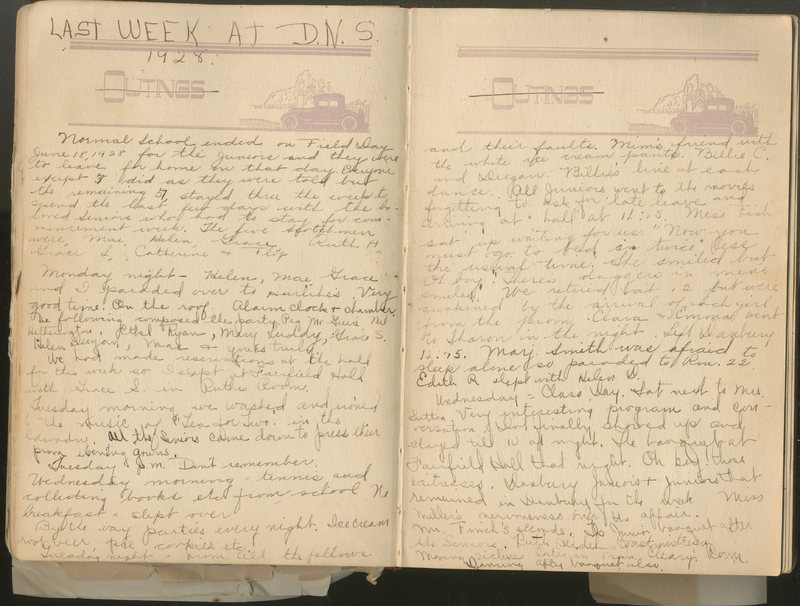 LAST WEEK AT D.N.S.
1928.
OUTINGS
Normal School ended on Field Day
June 18, 1928 for the Juniors and they were
to leave for home on that day. Everyone
except 7 did as they were told but
the remaining 7 stayed thru the week to
spend the last few days with the be-
loved Seniors who had to stay for com-
mencement week. The five
were, Mae, Helen, Grace, Ruth H
Grace S, Catherine & Flip
Monday night - Helen, Mae, Grace
and I paraded over to Very
good time. On the roof. Alarm clocks & chamber.
The following composed the party. Peg Mc
Ethel Ryan, May Luddy, Grace S.
Helen Mae & yours truly
We had made reservations at the hall
for this week so I slept at Fairfield Hall
with Grace S in Ruth's Room.
Tuesday morning we washed and ironed
to the music of "Tea for Two" in the
laundry. All the Seniors came down to press their
prom evening gowns.
Tuesday P.M. Don't remember.
Wednesday morning - tennis and
collecting books etc from school No
breakfast - slept over
By the way parties every night. Ice cream
root beer, pie, cookies etc.
Tuesday night - prom. all the fellows
OUTINGS
and their faults. Mim's friend with
the white ice cream pants. Billie C.
and Billie's line at each
dance. All Juniors went to the movies
forgetting to ask for late leave and
arriving at hall at 11:15. Miss Fish
sat up waiting for us. "Now you
must go to bed in twice less
the usual time." She smiled but
Oh boy! "Theres daggers in mens
smiles". We retired at 12 but were
awakened by the arrival of each girl
from the prom. Clara & Emma went
to Sharon in the night. Left Danbury
12.45. May Smith was afraid to
sleep alone so paraded to Rm. 22
Edith R slept with Helen D.
Wednesday = Class Day. Sat next to Mrs.
Sutton. Very interesting program and con-
versation. finally showed up and
stayed till 10 at night. The banquet at
Fairfield Hall that night. Oh boy! those
waitresses. Danbury Juniors & Juniors that
remained in Danbury for the week. Miss
Miller's nervousness over the affair.
Mr. Finch's seconds. banquet after
the Seniors. Ruth toastmistress
later in Room.
Dancing after banquet also.